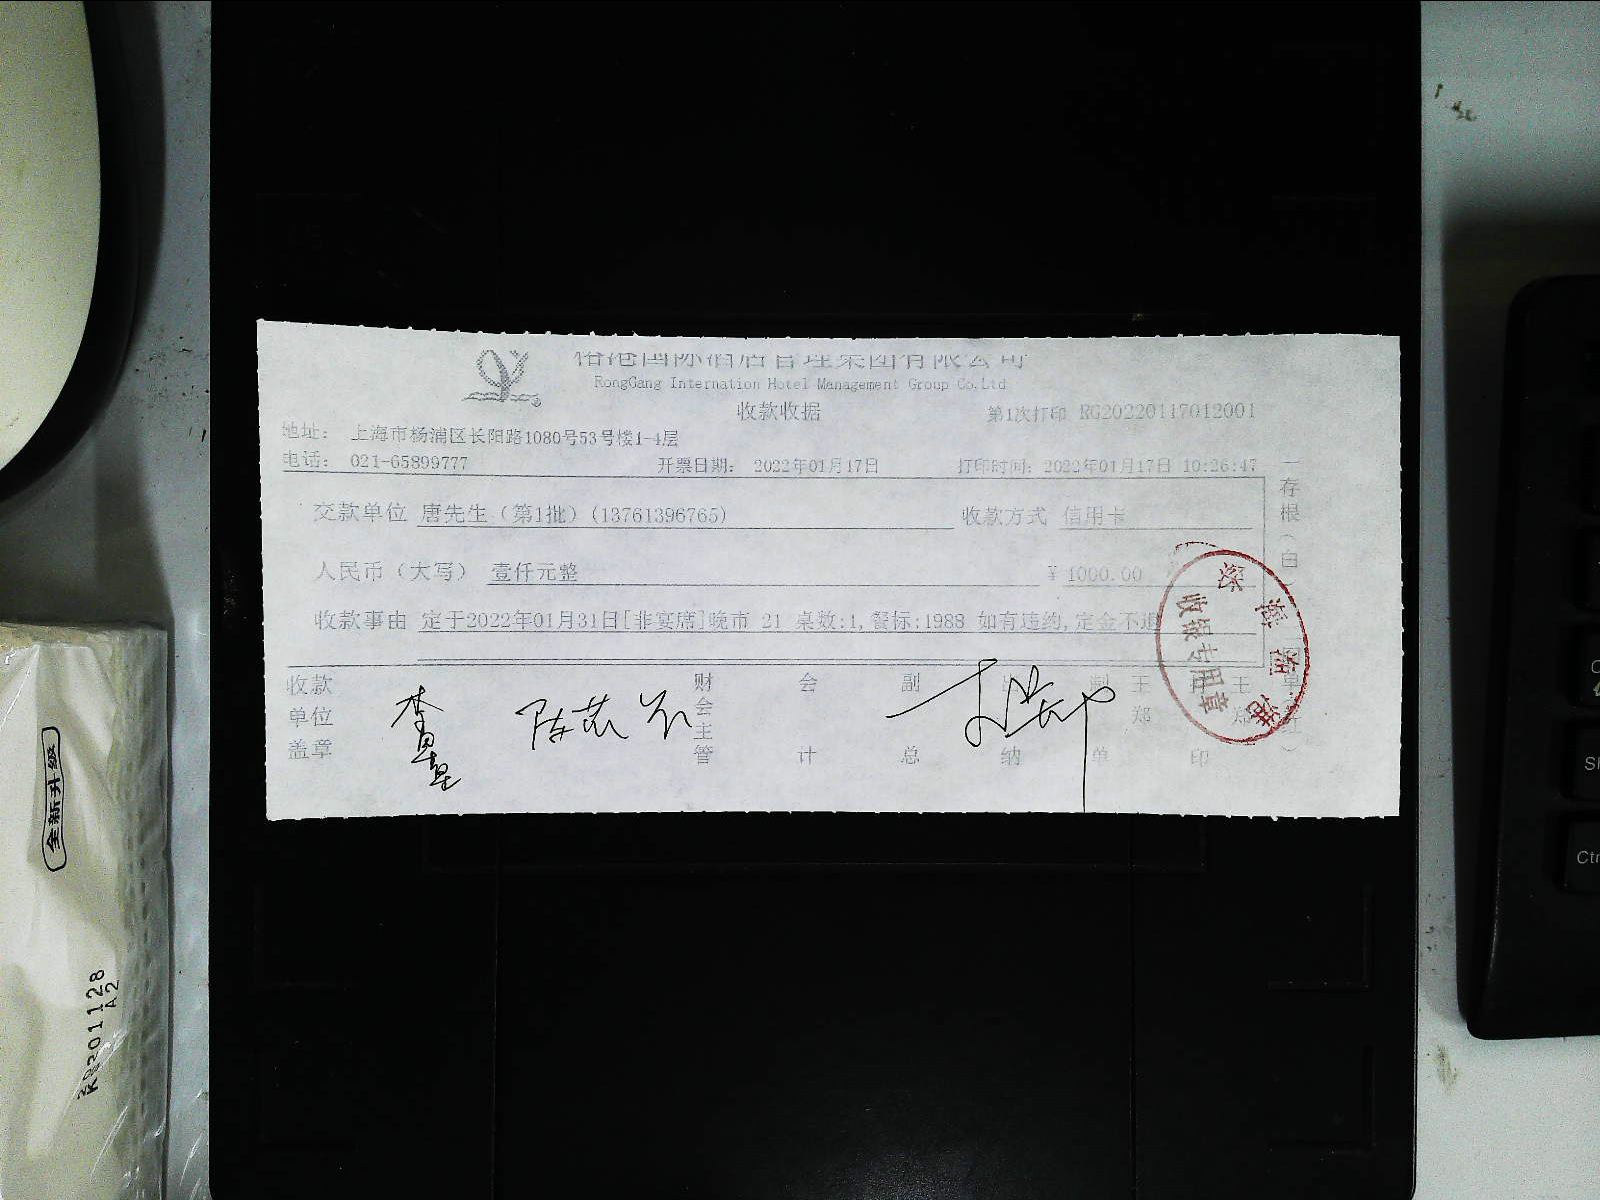 国际酒店管理集团有限公司
RongGang Internation Hotel Management Group Co.Ltd
收款收据
第1次打印 RG20220117012001
地址： 上海市杨浦区长阳路1080号53号楼1-4层
电话： 021-65899777 开票日期： 2022年01月17日 打印时间： 2022年01月17日 10:26:47
交款单位 唐先生（第1批）(13761396765) 收款方式 信用卡
人民币（大写） 壹仟元整 ¥ 1000.00
收款事由 定于2022年01月31日[非宴席]晚市 21 桌数:1,餐标:1988 如有违约,定金不退
收款单位盖章 财会主管 会计 副总 出纳 制单 王郑 印 王郑
存根（白）
收银专用章
全新升级
A2
Ctr